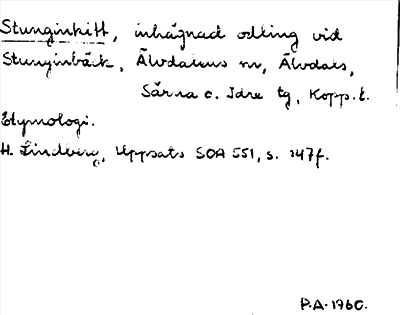 Stunginkitt, inhägnad odling vid
Stunginbäck, Älvdalens sn, Älvdals,
Särna o. Idre tg, Kopp. l.
Etymologi.
H. Lindberg, Uppsats SOA 551, s. 147f.
P.A-1960.